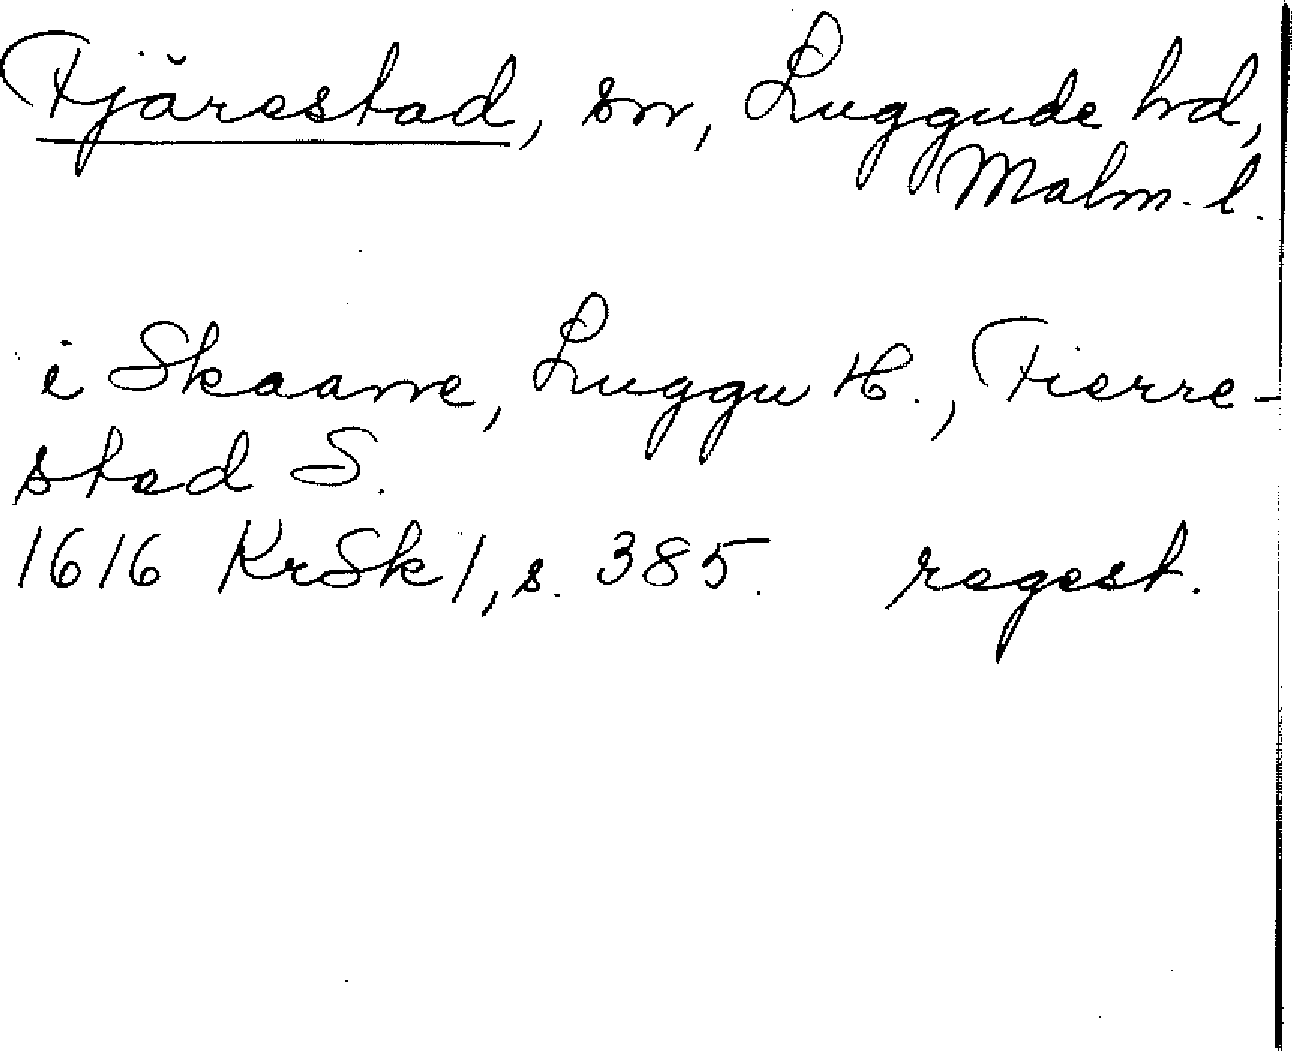 Fjärestad, sn, Luggude hd,
Malm. l.
i Skaane, Luggu H., Fierre-
stad S.
1616 KrSk 1, s. 385. regest.